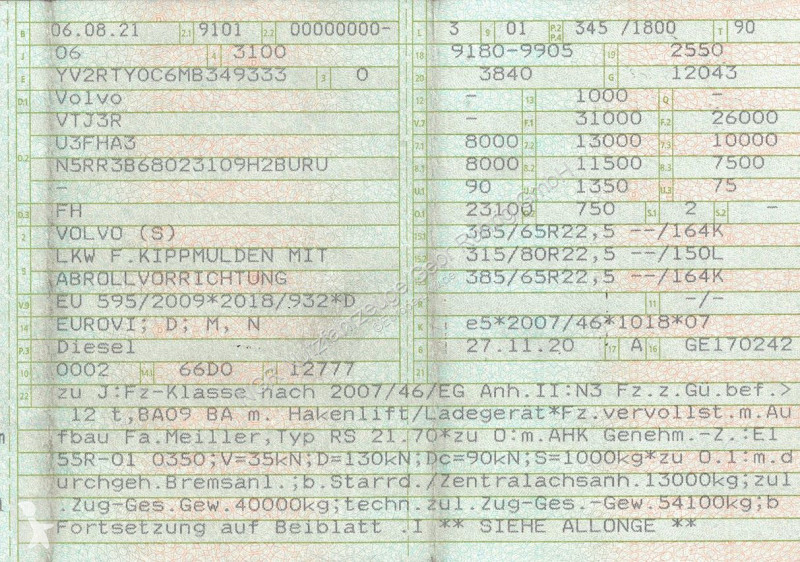 B 06.08.21 2.1 9101 2.2 00000000-
J 06 4 3100
E YV2RTY0C6MB349333 3 0
D.1 Volvo
VTJ3R
U3FHA3
D.2 N5RR3B68023109H2BURU
-
D.3 FH
2 VOLVO (S)
5 LKW F.KIPPMULDEN MIT
ABROLLVORRICHTUNG
V.9 EU 595/2009*2018/932*D
14 EUROVI; D; M, N
P.3 Diesel
10 0002 14.1 66D0 P.1 12777
L 3 9 01 P.2 P.4 345 /1800 T 90
18 9180-9905 19 2550
20 3840 G 12043
12 - 13 1000 Q -
V.7 - F.1 31000 F.2 26000
7.1 8000 7.2 13000 7.3 10000
8.1 8000 8.2 11500 8.3 7500
U.1 90 U.2 1350 U.3 75
O.1 23100 O.2 750 S.1 2 S.2 -
15.1 385/65R22,5 --/164K
15.2 315/80R22,5 --/150L
15.3 385/65R22,5 --/164K
R 11 -/-
K e5*2007/46*1018*07
6 27.11.20 17 A 16 GE170242
21
22 zu J:Fz-Klasse nach 2007/46/EG Anh.II:N3 Fz.z.Gu.bef.>
12 t,BA09 BA m. Hakenlift/Ladegerät*Fz.vervollst.m.Au
fbau Fa.Meiller,Typ RS 21.70*zu O:m.AHK Genehm.-Z.:E1
55R-01 0350;V=35kN;D=130kN;Dc=90kN;S=1000kg*zu O.1:m.d
urchgeh.Bremsanl.;b.Starrd./Zentralachsanh.13000kg;zul
.Zug-Ges.Gew.40000kg;techn.zul.Zug-Ges.-Gew.54100kg;b
Fortsetzung auf Beiblatt .I ** SIEHE ALLONGE **